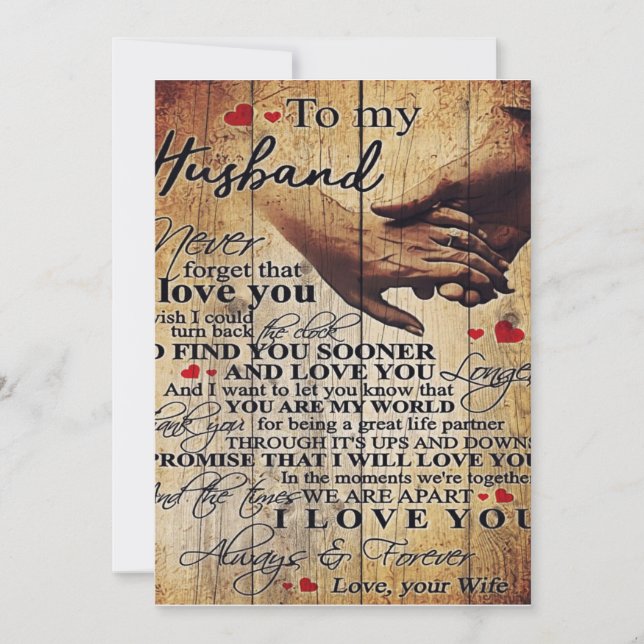 To my
Husband
Never
forget that
love you
wish I could
turn back the clock
D FIND YOU SOONER
AND LOVE YOU Longer
And I want to let you know that
YOU ARE MY WORLD
hank you for being a great life partner
THROUGH IT'S UPS AND DOWNS
PROMISE THAT I WILL LOVE YOU
In the moments we're together
And the times WE ARE APART
I LOVE YOU
Always & Forever
Love, your Wife